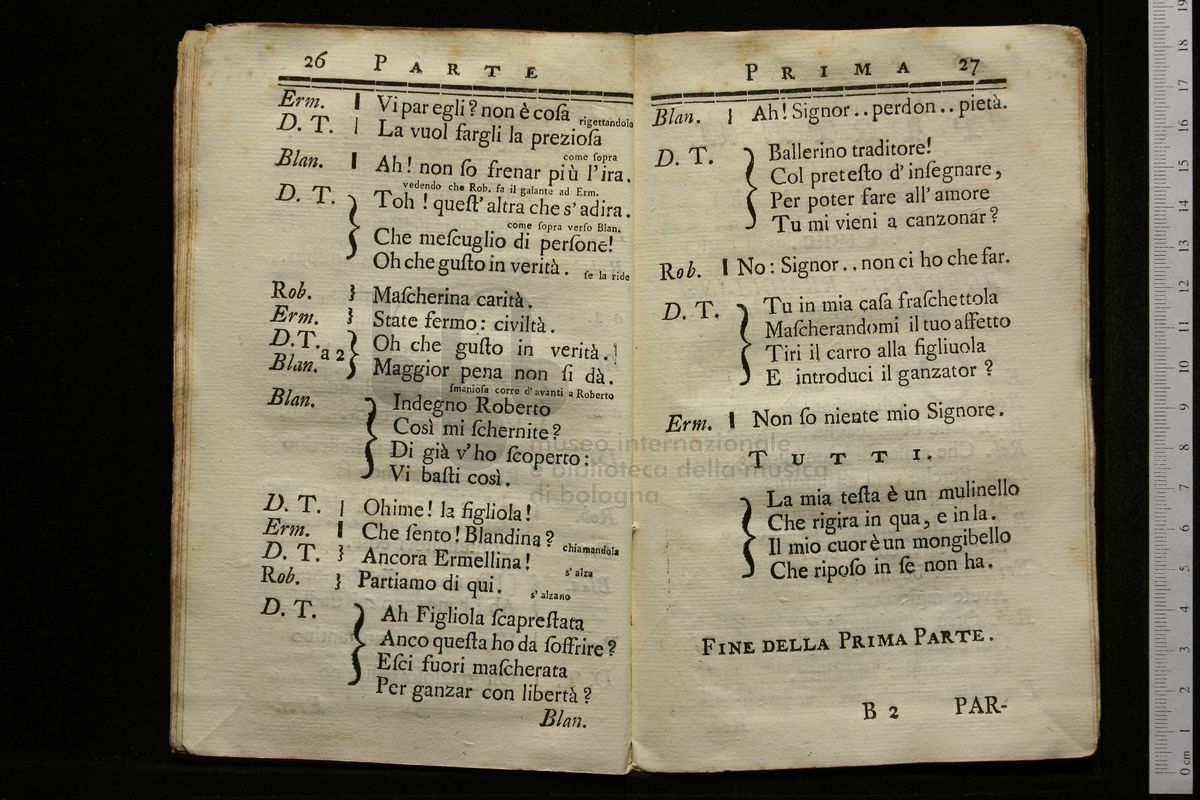 26 PARTE
Erm. Vi par egli? non è coſa
rigettandolo
D. T. La vuol fargli la prezioſa
come ſopra
Blan. Ah! non ſo frenar più l'ira.
vedendo che Rob. fa il galante ad Erm.
D. T. Toh! queſt' altra che s' adira.
come ſopra verſo Blan.
Che meſcuglio di perſone!
Oh che guſto in verità. ſe la ride
Rob. Maſcherina carità.
Erm. State fermo: civiltà.
D.T. Oh che guſto in verità.
a 2
Blan. Maggior pena non ſi dà.
ſmanioſa corre d' avanti a Roberto
Blan. Indegno Roberto
Così mi ſchernite?
Di già v' ho ſcoperto:
Vi baſti così.
D. T. Ohime! la figliola!
Erm. Che ſento! Blandina?
chiamandola
D. T. Ancora Ermellina!
s' alza
Rob. Partiamo di qui.
s' alzano
D. T. Ah Figliola ſcapreſtata
Anco queſta ho da ſoffrire?
Eſci fuori maſcherata
Per ganzar con libertà?
Blan.
PRIMA 27
Blan. Ah! Signor.. perdon.. pietà.
D. T. Ballerino traditore!
Col preteſto d' inſegnare,
Per poter fare all' amore
Tu mi vieni a canzonar?
Rob. No: Signor.. non ci ho che far.
D. T. Tu in mia caſa fraſchettola
Maſcherandomi il tuo affetto
Tiri il carro alla figliuola
E introduci il ganzator?
Erm. Non ſo niente mio Signore.
TUTTI.
La mia teſta è un mulinello
Che rigira in qua, e in la.
Il mio cuor è un mongibello
Che ripoſo in ſe non ha.
FINE DELLA PRIMA PARTE.
B 2 PAR-
museo internazionale
e biblioteca della musica
di bologna
0 cm 1 2 3 4 5 6 7 8 9 10 11 12 13 14 15 16 17 18 19